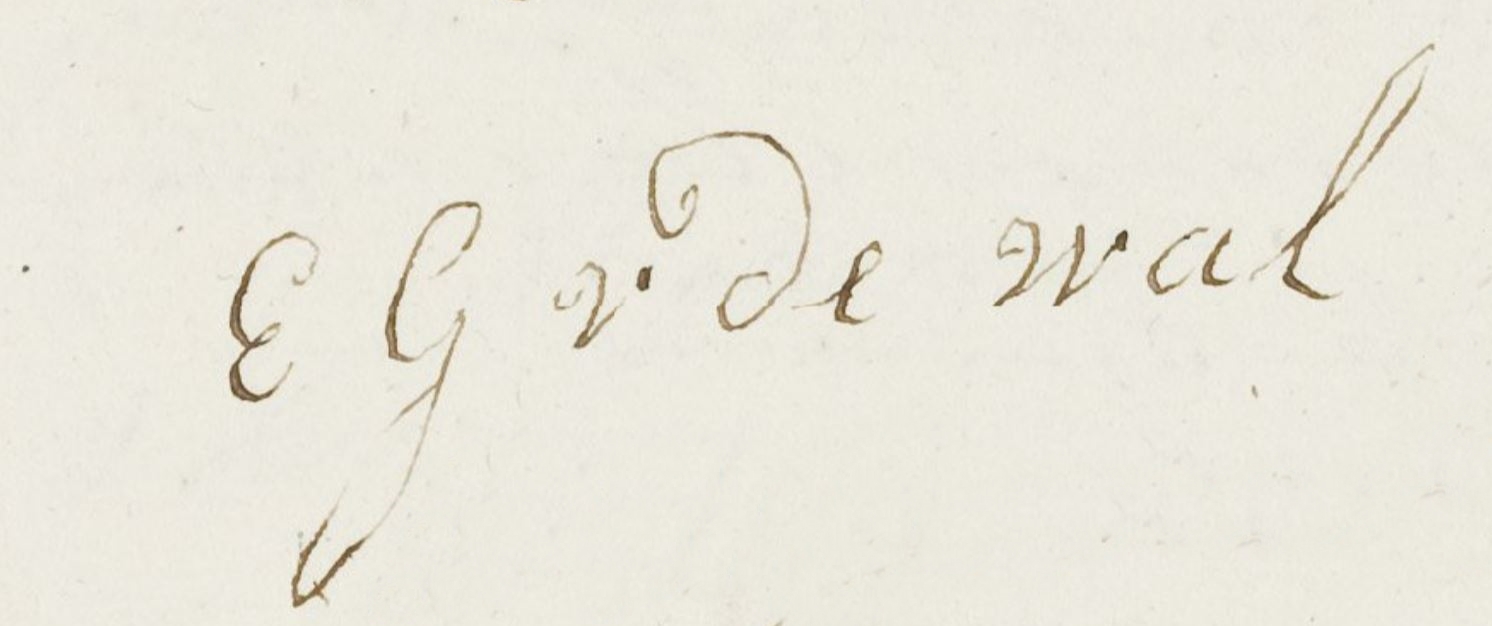 E G v de wal